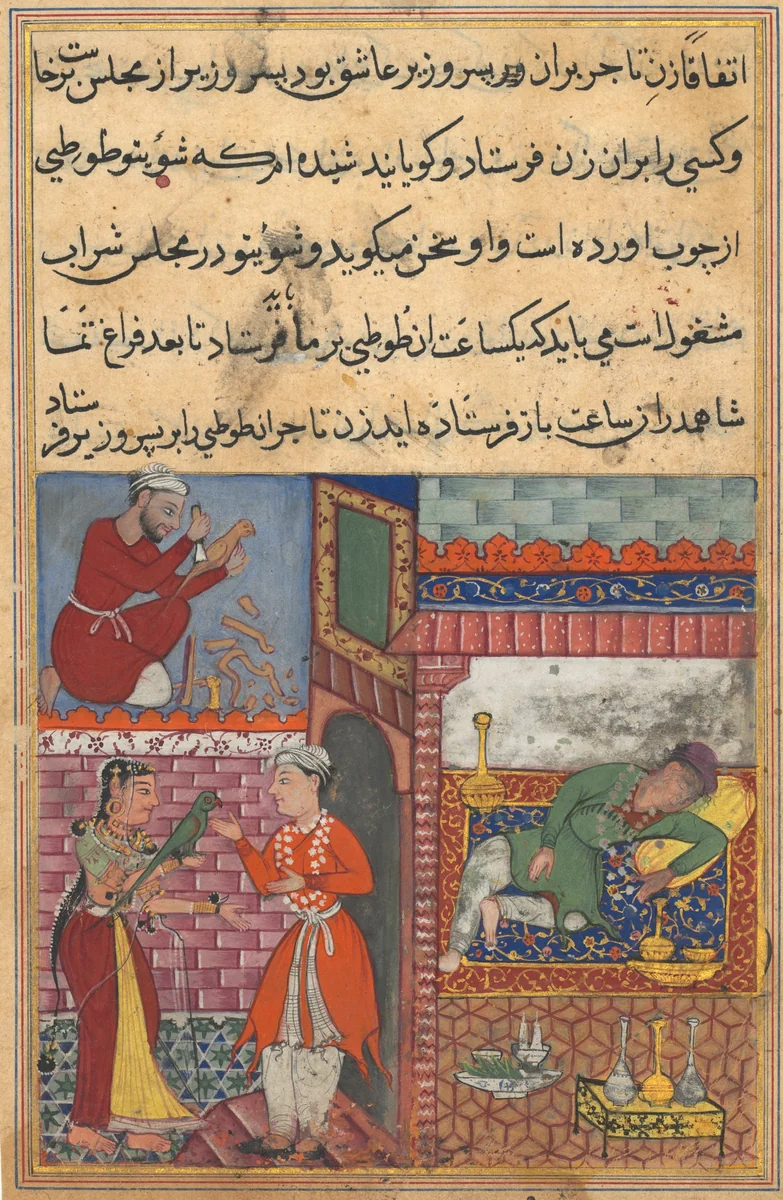 اتفاقًا زنِ تاجر بران پسر وزیر عاشق بود پسر وزیر از مجلس برخاست
وکسي را بران زن فرستاد وکویانید شنیده ام که شوٴیتو طوطیي
از چوب اورده است واو سخن میکوید و شوٴیتو در مجلس شراب
مشغول است مي باید که یکساعَت ان طُوطیي بر ما باید فرستاد تا بعد فراغ تَمَا
شا همدران ساعت باز فرستَادَه اید زن تاجر انطوطیي را بر پسر وزیر فرستاد